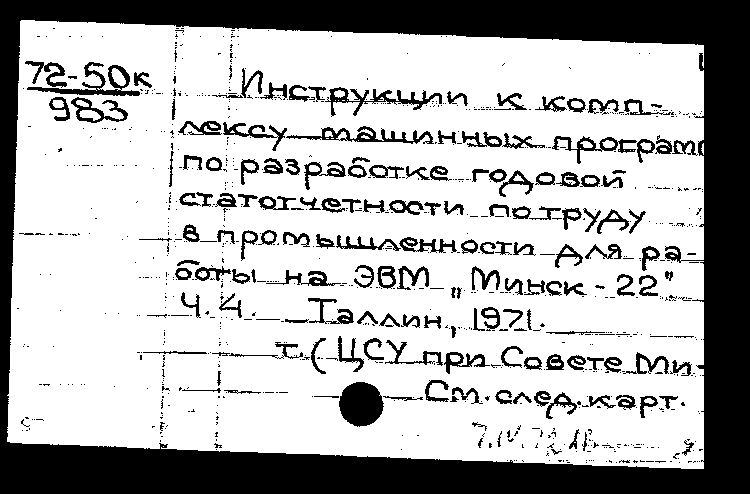 72-50к
983
Инструкции к комп-
лексу машинных програм
по разработке годовой
статотчетности по труду
в промышленности для ра-
боты на ЭВМ „Минск - 22".
Ч. 4. Таллин, 1971.
т. (ЦСУ при Совете Ми-
См. след. карт.
7.IV.72